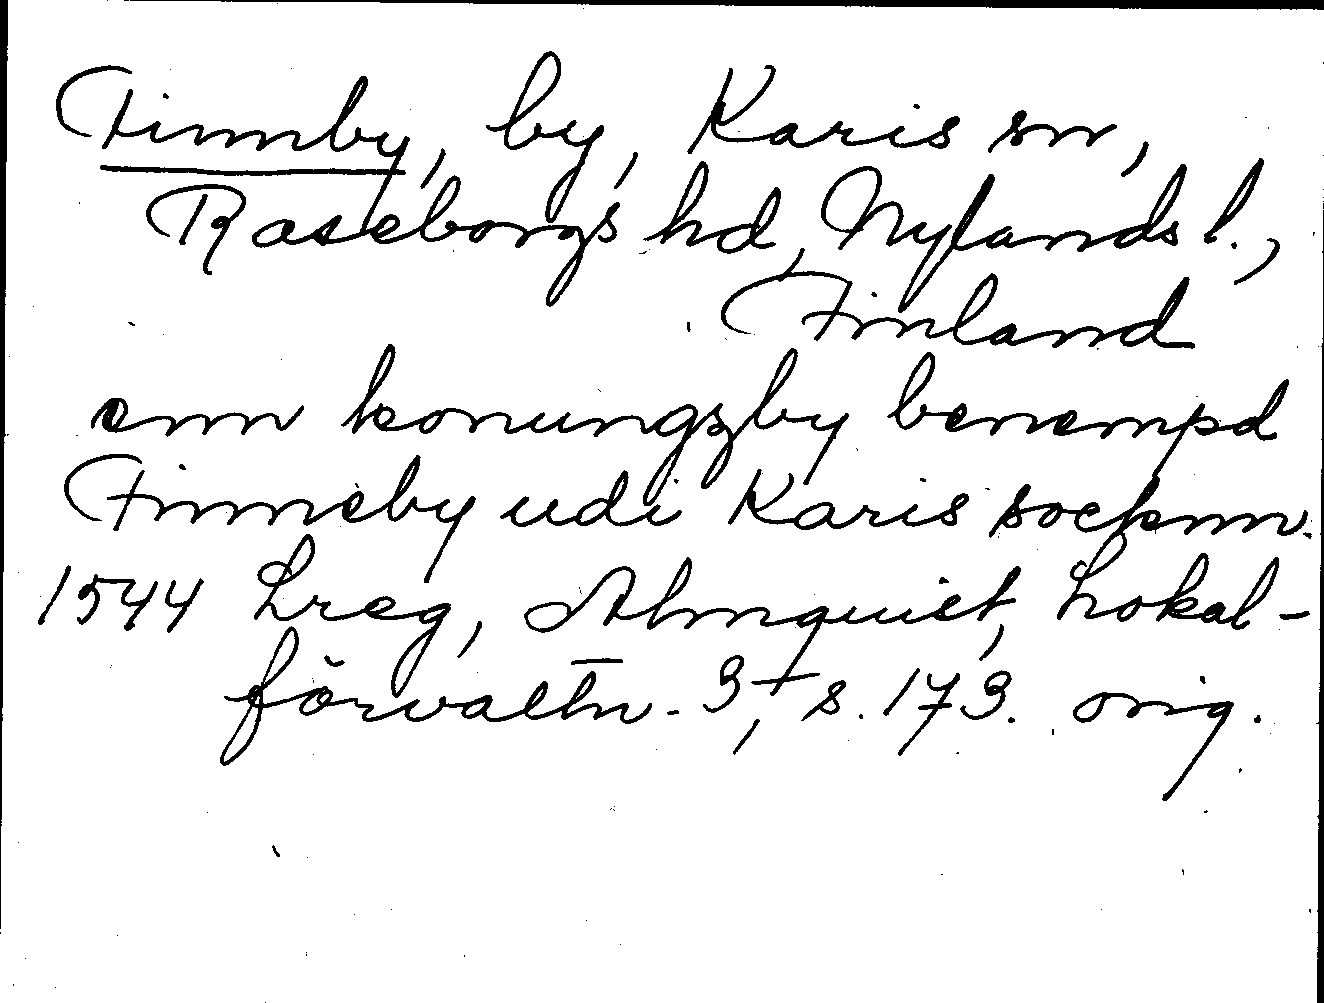 Finnby, by, Karis sn,
Raseborgs hd, Nylands l.,
Finland
enn konungzby benempd
Finneby udi Karis sockenn.
1544 Lreg, Almquist, Lokal-
förvaltn. 3, s. 173. orig.